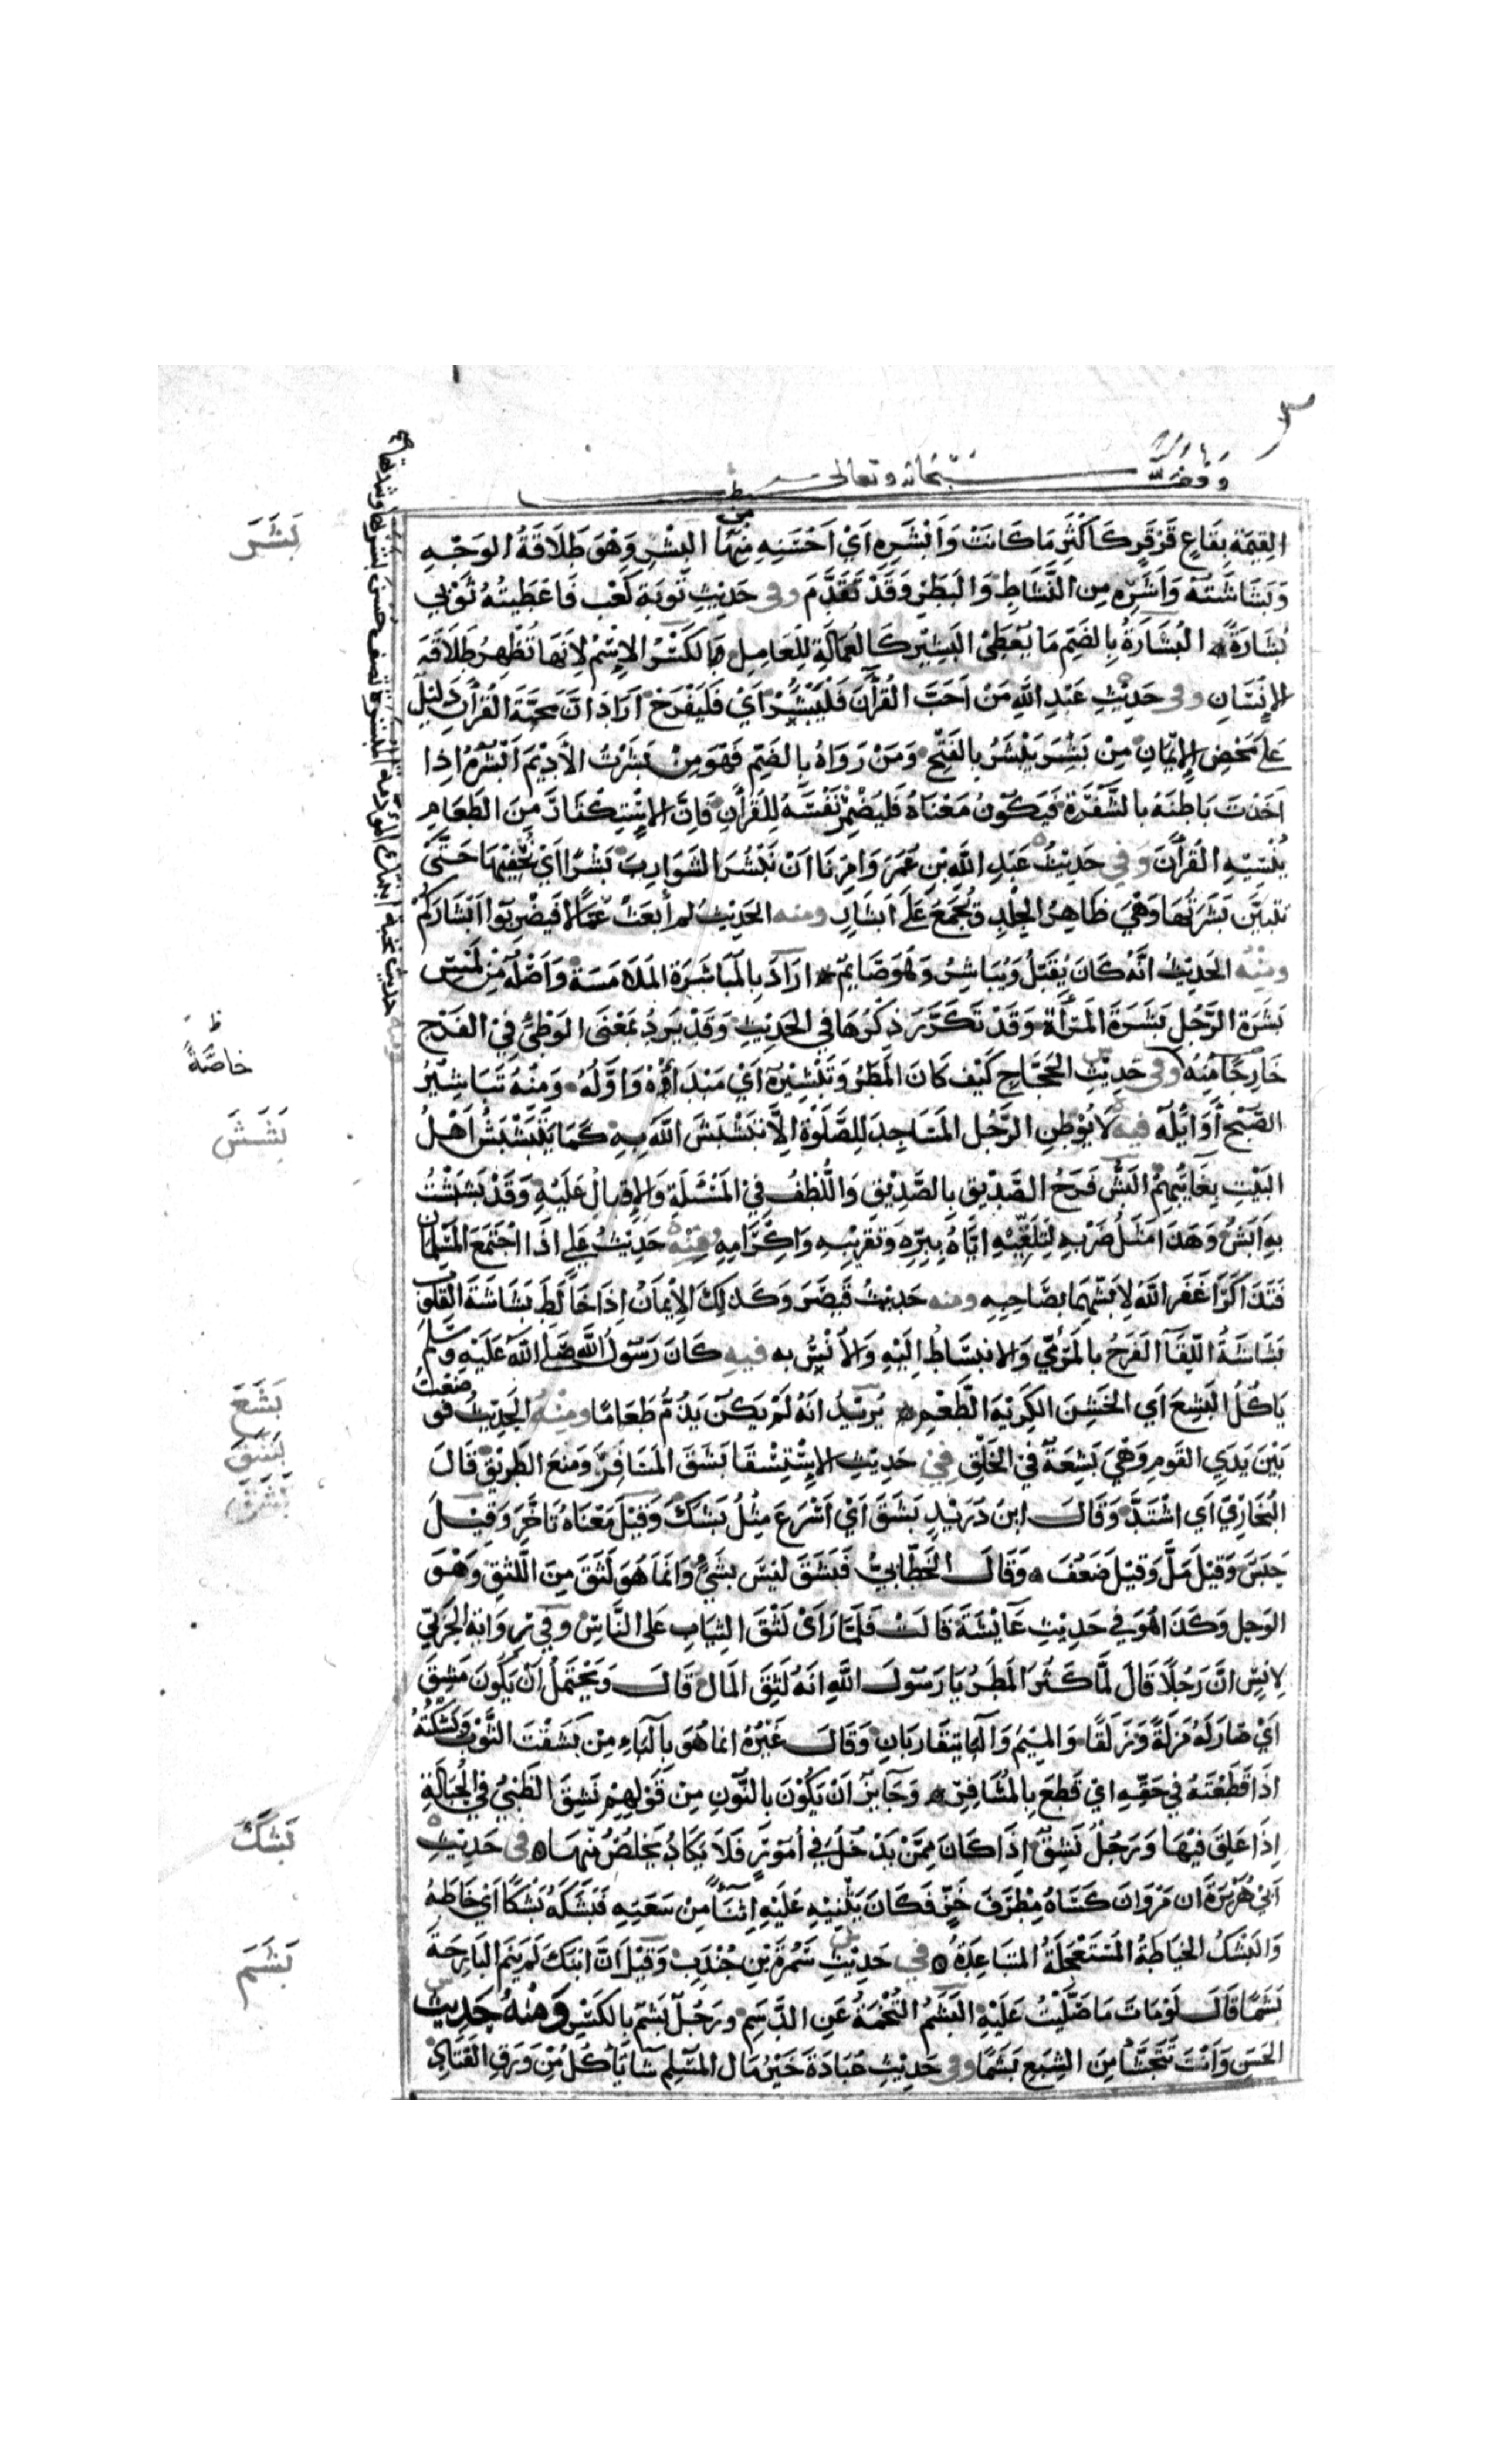 وقف لله سبحانه وتعالى
القيمة بقاع قرقر كأكثر ما كانت وأبشره أي أحسنه من البشر وهو طلاقة الوجه
وبشاشته وأشره من النشاط والبطر وقد تقدم وفى حديث توبة كعب فاعطيته ثوبي
بشارة البشارة بالضم ما يعطى البشير كالعمالة للعامل وبالكسر الاسم لانها تظهر طلاقة
الانسان وفى حديث عبد الله من احب القرآن فليبشر اي فليفرح اراد ان محبة القرآن دليل
على محض الإيمان من بشر يبشر بالفتح ومن رواه بالضم فهو من بشرت الاديم ابشره اذا
اخذت باطنه بالشفرة فيكون معناه فليضمر نفسه للقرآن فان الاستكثار من الطعام
ينسيه القرآن وفي حديث عبد الله بن عمر وامرنا ان نبشر الشوارب بشرا اي نحفيها حتى
تتبين بشرتها وهي ظاهر الجلد وتجمع على ابشار ومنه الحديث لم أبعث عمالا ليضربوا ابشاركم
ومنه الحديث انه كان يقبل ويباشر وهو صايم اراد بالمباشرة الملامسة واصله من لمس
بشرة الرجل بشرة المرأة وقد تكرر ذكرها في الحديث وقد يرد بمعنى الوطئ في الفرج
خارجا منه وفى حديث الحجاج كيف كان المطر وتبشيره اي مبدأه واوله ومنه تباشير
الصبح أوايله فيه لا يوطن الرجل المساجد للصلوة الا تبشبش الله به كما يتبشبش اهل
البيت بغائبهم البش فرح الصديق بالصديق واللطف في المسئلة والاقبال عليه وقد بششت
به ابش وهذا مثل ضربه لتلقيه اياه ببره وتقريبه واكرامه ومنه حديث علي اذا اجتمع المسلمان
فتذاكرا غفر الله لابشهما بصاحبه ومنه حديث قيصر وكذلك الايمان اذا خالط بشاشة القلوب
بشاشة اللقا الفرح بالمرئي والانبساط اليه والأنس به فيه كان رسول الله صلى الله عليه وسلم
ياكل البشع اي الخشن الكريه الطعم يريد انه لم يكن يذم طعاما ومنه الحديث فوضعت
بين يدي القوم وهي بشعة في الحلق في حديث الاستسقا بشق المسافر ومنع الطريق قال
البخاري اي اشتد وقال ابن دريد بشق أي أسرع مثل بشك وقيل معناه تاخر وقيل
حبس وقيل مل وقيل ضعف وقال الخطابي فبشق ليس بشئ وانما هو لثق من اللثق وهو
الوحل وكذا هو في حديث عايشة قالت فلما رأى لثق الثياب على الناس وفي رواية اخرى
لانس ان رجلا قال لما كثر المطر يا رسول الله انه لثق المال قال ويحتمل ان يكون مشق
اي صار له مزلة وزلقا والميم والبا يتقاربان وقال غيره انما هو بالباء من بشقت الثوب وبشكته
اذا قطعته في خفة اي قطع بالمسافر وجايز ان يكون بالنون من قولهم نشق الظبي في الحبالة
اذا علق فيها ورجل نشق اذا كان ممن يدخل في امور فلا يكاد يخلص منها في حديث
ابي هريرة ان مروان كساه مطرف خز فكان يثنيه عليه اثناء من سعته فبشكه بشكا اي خاطه
والبشك الخياطة المستعجلة المتباعدة في حديث سمرة بن جندب وقيل ان ابنك لم ينم البارحة
بشما قال لو مات ما صليت عليه البشم التخمة عن الدسم ورجل بشم بالكسر ومنه حديث
الحسن وانت تتجشأ من الشبع بشما وفي حديث عبادة خير مال المسلم شا ياكل من ورق القتاد
بشر
خاصة
بشش
بشع
بشق
بشك
بشم